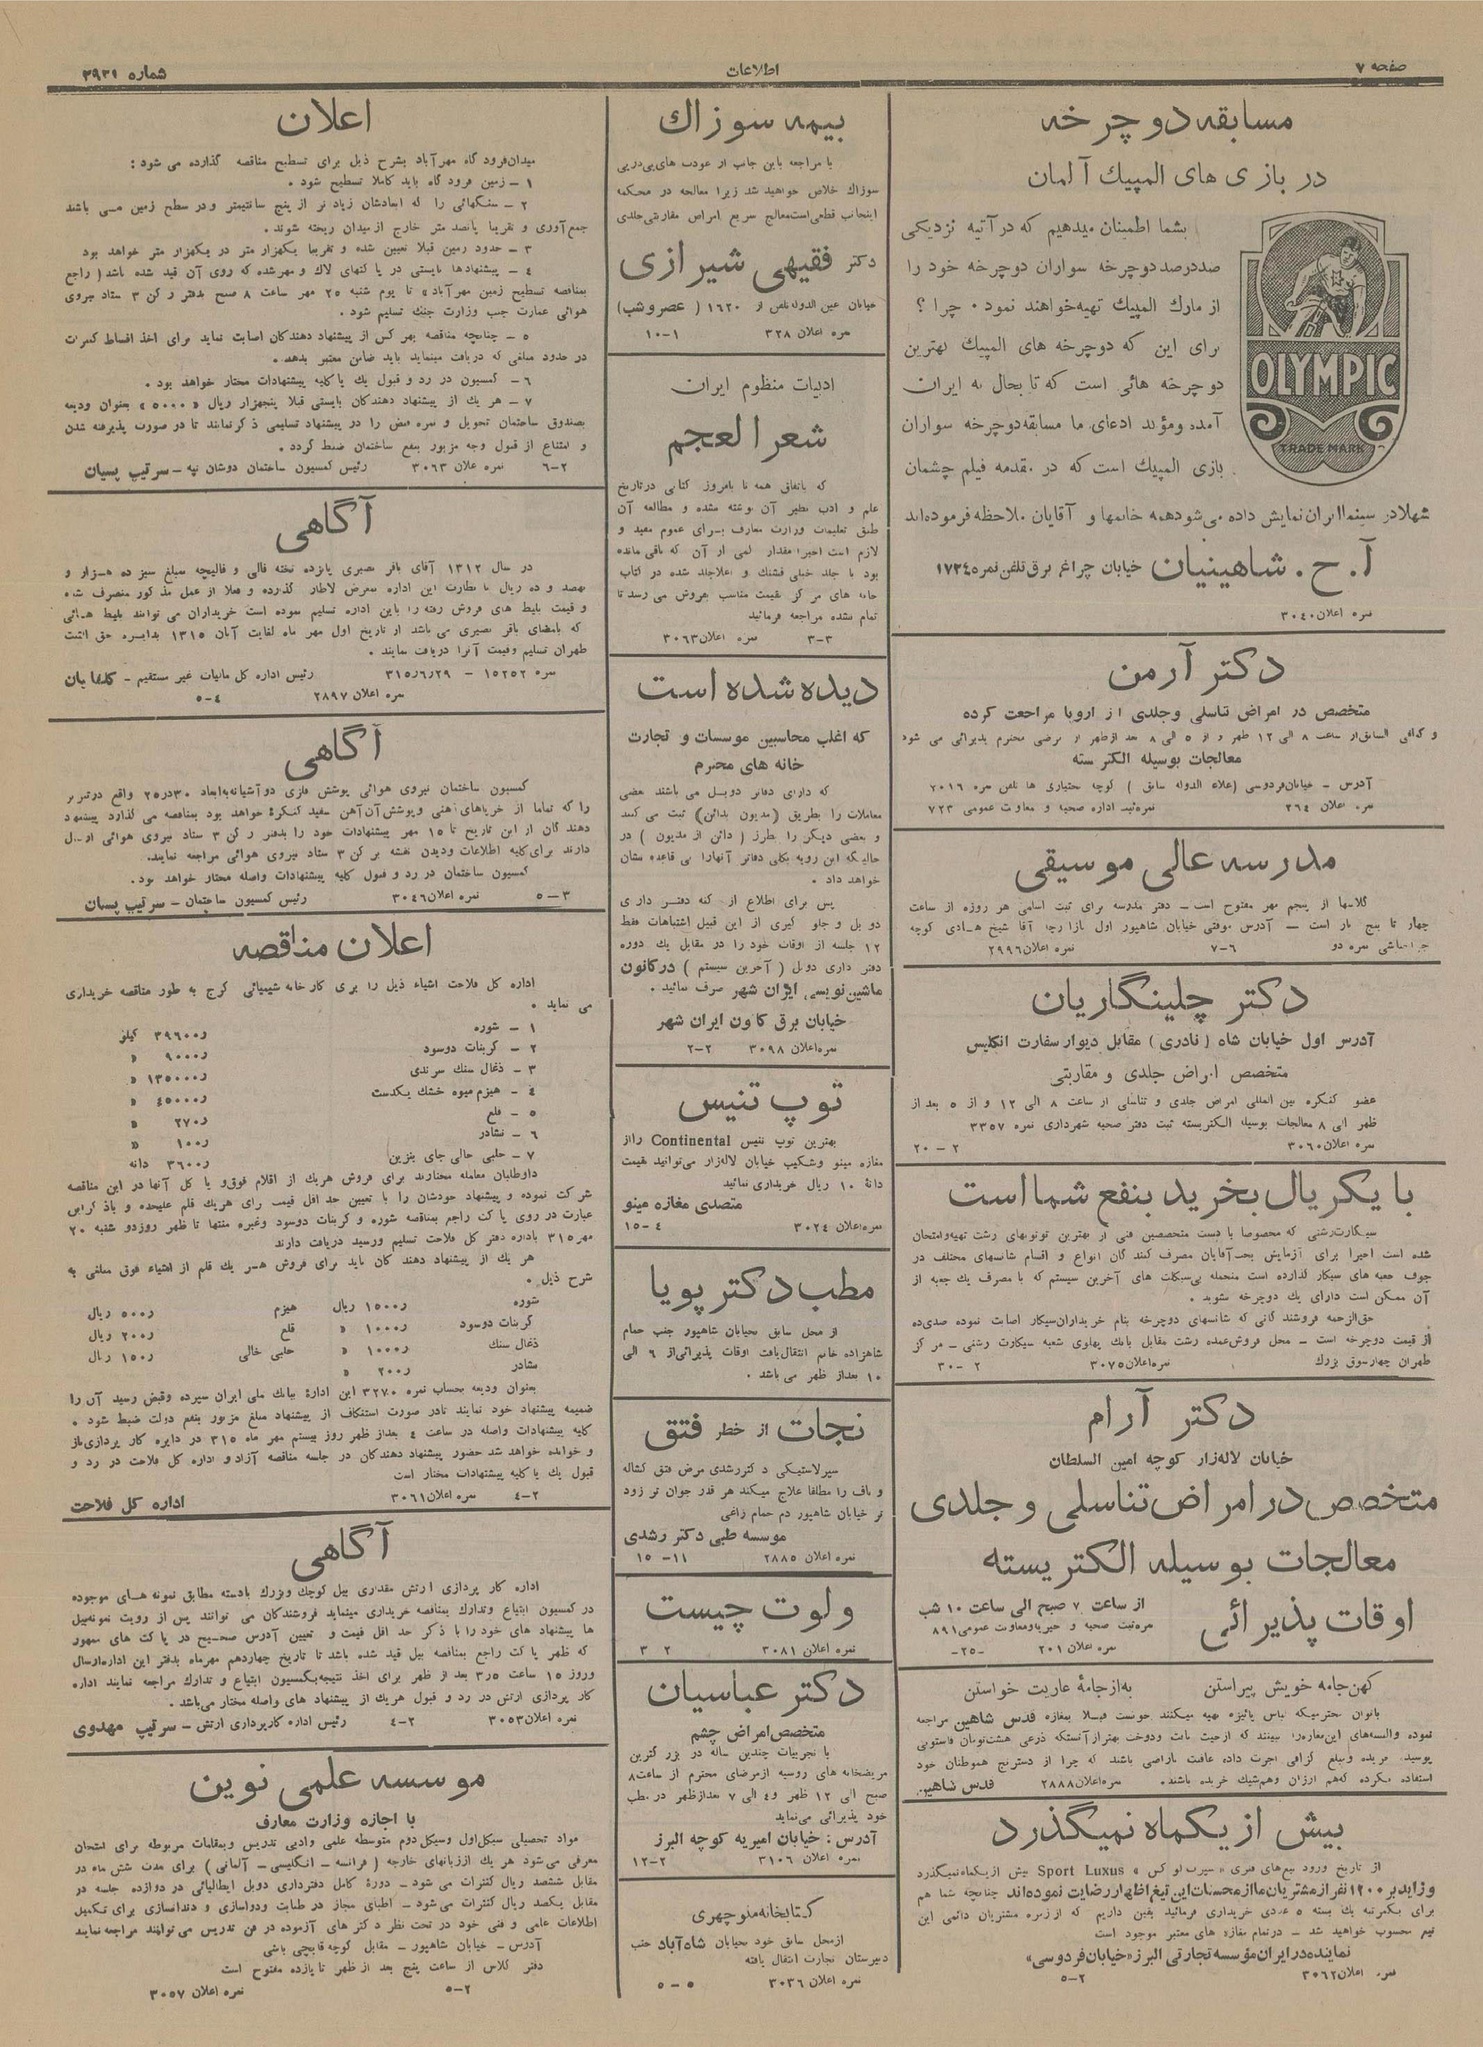 صفحه ۷
اطلاعات
شماره ۲۹۳۱
مسابقه دوچرخه
در بازی های المپیك آلمان
بشما اطمینان میدهیم که در آتیه نزدیکی
صددرصد دوچرخه سواران دوچرخه خود را
از مارك المپیك تهیه خواهند نمود . چرا ؟
برای این که دوچرخه های المپیك بهترین
دوچرخه هائی است که تا بحال به ایران
آمده و مؤید ادعای ما مسابقه دوچرخه سواران
بازی المپیك است که در مقدمه فیلم چشمان
شهلا در سینما ایران نمایش داده می شود همه خانمها و آقایان ملاحظه فرموده اند
OLYMPIC
TRADE MARK
آ . ح . شاهینیان خیابان چراغ برق تلفن نمره ۱۷۲۴
نمره اعلان ۳۰۴۰
دکتر آرمن
متخصص در امراض تناسلی و جلدی از اروپا مراجعت کرده
و کمافی السابق از ساعت ۸ الی ۱۲ ظهر و از ۵ الی ۸ بعد از ظهر از مرضی محترم پذیرائی می شود
معالجات بوسیله الکتریسته
آدرس – خیابان فردوسی (علاء الدوله سابق ) کوچه بختیاری ها تلفن نمره ۲۰۱۶
نمره اعلان ۲۶۴ نمره ثبت اداره صحیه و معاونت عمومی ۷۲۳
مدرسه عالی موسیقی
کلاسها از پنجم مهر مفتوح است – دفتر مدرسه برای ثبت اسامی هر روزه از ساعت
چهار تا پنج باز است – آدرس موقتی خیابان شاهپور اول بازارچه آقا شیخ هادی کوچه
نمره دو ۶-۷ نمره اعلان ۲۹۹۶
دکتر چلینگاریان
آدرس اول خیابان شاه (نادری) مقابل دیوار سفارت انگلیس
متخصص امراض جلدی و مقاربتی
عضو کنگره بین المللی امراض جلدی و تناسلی از ساعت ۸ الی ۱۲ و از ۵ بعد از
ظهر الی ۸ معالجات بوسیله الکتریسته ثبت دفتر صحیه شهرداری نمره ۳۳۵۷
نمره اعلان ۳۰۶۰ ۲ – ۲۰
با یکریال بخرید بنفع شما است
سیگارت رشتی که مخصوصا با دست متخصصین فنی از بهترین توتونهای رشت تهیه و امتحان
شده است اخیرا برای آزمایش بخت آقایان مصرف کنند گان انواع و اقسام شانسهای مختلف در
جوف جعبه های سیگار گذارده است منجمله بیسکلت های آخرین سیستم که با مصرف یك جعبه از
آن ممکن است دارای یك دوچرخه شوید .
حق الزحمه فروشند گانی که شانسهای دوچرخه بنام خریداران سیگار اصابت نموده صدی ده
از قیمت دوچرخه است – محل فروش عمده رشت مقابل بانك پهلوی شعبه سیگارت رشتی – مرکز
طهران چهارسوق بزرگ نمره اعلان ۳۰۷۵ ۲ – ۳۰
دکتر آرام
خیابان لاله زار کوچه امین السلطان
متخصص در امراض تناسلی و جلدی
معالجات بوسیله الکتریسته
اوقات پذیرائی
از ساعت ۷ صبح الی ساعت ۱۰ شب
نمره ثبت صحیه و خیریه و معاونت عمومی ۸۹۱
نمره اعلان ۲۰۱ –۲۵–
کهن جامه خویش پیراستن به از جامه عاریت خواستن
بانوان محترمیکه لباس پائیزه تهیه میکنند خوبست قبلا بمغازه قدس شاهین مراجعه
استفاده نکرده که هم ارزان و هم شیك خریده باشند. نمره اعلان ۲۸۸۸ قدس شاهین
بیش از یکماه نمیگذرد
از تاریخ ورود تیغ های Sport Luxus بیش از یکماه نمیگذرد
و زاید بر ۱۲۰۰ نفر از مشتریان ما از محسنات این تیغ اظهار رضایت نموده اند چنانچه شما هم
برای یکمرتبه یك بسته ۵ عددی خریداری فرمائید یقین داریم که از زمره مشتریان دائمی این
تیغ محسوب خواهید شد – در تمام مغازه های معتبر موجود است
نماینده در ایران مؤسسه تجارتی البرز «خیابان فردوسی»
نمره اعلان ۳۰۶۲ ۲-۵
بیمه سوزاك
با مراجعه باین جانب از عودت های پی در پی
سوزاك خلاص خواهید شد زیرا معالجه در محکمه
اینجانب قطعی است معالج سریع امراض مقاربتی جلدی
دکتر فقیهی شیرازی
خیابان عین الدوله تلفن ۱۶۲۰ ( عصر و شب)
نمره اعلان ۳۲۸ ۱-۱۰
ادبیات منظوم ایران
شعر العجم
که باتفاق همه تا بامروز کتابی در تاریخ
علم و ادب نظیر آن نوشته نشده و مطالعه آن
طبق تعلیمات وزارت معارف برای عموم مفید و
لازم است اخیرا مقدار کمی از آن که باقی مانده
بود با جلد خیلی قشنگ و اعلا جلد شده در کتاب
خانه های مرکز بقیمت مناسب بفروش می رسد تا
تمام نشده مراجعه فرمائید
۳-۳ نمره اعلان ۳۰۶۳
دیده شده است
که اغلب محاسبین موسسات و تجارت
خانه های محترم
که دارای دفاتر دوبل می باشند بعضی
معاملات را بطریق (مدیون بدائن) ثبت می کنند
و بعضی دیگر را بطرز ( دائن از مدیون ) در
حالیکه این رویه بکلی دفاتر آنهارا بی قاعده نشان
خواهد داد .
پس برای اطلاع از کنه دفتر داری
دوبل و جلو گیری از این قبیل اشتباهات فقط
۱۲ جلسه از اوقات خود را در مقابل یك دوره
دفتر داری دوبل ( آخرین سیستم ) در کانون
ماشین نویسی ایران شهر صرف نمائید .
خیابان برق کانون ایران شهر
نمره اعلان ۳۰۹۸ ۲-۲
توپ تنیس
بهترین توپ تنیس Continental را از
مغازه مینو و شکیب خیابان لاله زار می توانید بقیمت
دانهٔ ۱۰ ریال خریداری نمائید
متصدی مغازه مینو
نمره اعلان ۳۰۲۴ ۴-۱۵
مطب دکتر پویا
از محل سابق بخیابان شاهپور جنب حمام
شاهزاده خانم انتقال یافت اوقات پذیرائی از ۶ الی
۱۰ بعد از ظهر می باشد .
نجات از خطر فتق
سیرلاستیکی دکتر رشدی مرض فتق کشاله
و ناف را مطلقا علاج میکند هر قدر جوان تر زود
تر خیابان شاهپور دم حمام زاغی
موسسه طبی دکتر رشدی
نمره اعلان ۲۸۸۵ ۱۱-۱۵
ولوت چیست
نمره اعلان ۳۰۸۱ ۲ ۳
دکتر عباسیان
متخصص امراض چشم
با تجربیات چندین ساله در بزرگترین
مریضخانه های روسیه از مرضای محترم از ساعت ۸
صبح الی ۱۲ ظهر و ۴ الی ۷ بعد از ظهر در مطب
خود پذیرائی می نماید
آدرس : خیابان امیریه کوچه البرز
نمره اعلان ۳۱۰۶ ۲-۱۲
کتابخانه منوچهری
از محل سابق خود بخیابان شاه آباد جنب
دبیرستان تجارت انتقال یافته
نمره اعلان ۳۰۳۶ ۵ – ۵
اعلان
میدان فرود گاه مهرآباد بشرح ذیل برای تسطیح بمناقصه گذارده می شود :
۱ – زمین فرود گاه باید کاملا تسطیح شود .
۲ – سنگهائی را که ابعادشان زیاد تر از پنج سانتیمتر و در سطح زمین می باشد
جمع آوری و تقریبا پانصد متر خارج از میدان ریخته شوند .
۳ – حدود زمین قبلا تعیین شده و تقریبا یکهزار متر در یکهزار متر خواهد بود
۴ – پیشنهادها بایستی در پاکتهای لاك و مهر شده که روی آن قید شده باشد ( راجع
بمناقصه تسطیح زمین مهرآباد» تا یوم شنبه ۲۵ مهر ساعت ۸ صبح بدفتر رکن ۳ ستاد نیروی
هوائی عمارت جنب وزارت جنگ تسلیم شود .
۵ – چنانچه مناقصه بهر کس از پیشنهاد دهندگان اصابت نماید برای اخذ اقساط کنترات
در حدود مبلغی که دریافت مینماید باید ضامن معتبر بدهد .
۶ – کمسیون در رد و قبول یك یا کلیه پیشنهادات مختار خواهد بود .
۷ – هر یك از پیشنهاد دهندگان بایستی قبلا پنجهزار ریال « ۵۰۰۰» بعنوان ودیعه
بصندوق ساختمان تحویل و نمره قبض را در پیشنهاد تسلیمی ذکر نمایند تا در صورت پذیرفته شدن
و امتناع از قبول وجه مزبور بنفع ساختمان ضبط گردد .
۲-۶ نمره اعلان ۳۰۶۳ رئیس کمسیون ساختمان دوشان تپه – سرتیپ پسیان
آگاهی
در سال ۱۳۱۲ آقای باقر نصیری پانزده تخته قالی و قالیچه بمبلغ سیزده هزار و
نهصد و ده ریال با نظارت این اداره بمعرض لاطار گذارده و فعلا از عمل مذکور منصرف شده
و قیمت بلیط های فروش رفته را باین اداره تسلیم نموده است خریداران می توانند بلیط هائی
که بامضای باقر نصیری می باشد از تاریخ اول مهر ماه لغایت آبان ۱۳۱۵ بدایره حق الثبت
طهران تسلیم و قیمت آنرا دریافت نمایند .
نمره ۱۵۲۵۲ – ۳۱۵٫۶٫۲۹ رئیس اداره کل مالیات غیر مستقیم – گلشائیان
نمره اعلان ۲۸۹۷ ۴-۵
آگاهی
کمسیون ساختمان نیروی هوائی پوشش فلزی دو آشیانه بابعاد ۳۰ در ۲۵ واقع در تبریز
را که تماما از خرپاهای آهنی و پوشش آن آهن سفید کنگرهٔ خواهد بود بمناقصه می گذارد پیشنهاد
دهند گان از این تاریخ تا ۱۵ مهر پیشنهادات خود را بدفتر رکن ۳ ستاد نیروی هوائی ارسال
دارند برای کلیه اطلاعات و دیدن نقشه بر کن ۳ ستاد نیروی هوائی مراجعه نمایند.
کمسیون ساختمان در رد و قبول کلیه پیشنهادات واصله مختار خواهد بود.
۳-۵ نمره اعلان ۳۰۴۶ رئیس کمسیون ساختمان – سرتیپ پسیان
اعلان مناقصه
اداره کل فلاحت اشیاء ذیل را برای کارخانه شیمیائی کرج به طور مناقصه خریداری
می نماید .
۱ – شوره ۳۹٫۶۰۰ کیلو
۲ – کربنات دوسود ۹٫۰۰۰ «
۳ – ذغال سنگ سرندی ۱۳۵٫۰۰۰ «
۴ – هیزم میوه خشك یکدست ۴۵٫۰۰۰ «
۵ – قلع ۲۷۰ «
۶ – نشادر ۱۰۰ «
۷ – حلبی خالی جای بنزین ۳۶۰۰ دانه
داوطلبان معامله مختارند برای فروش هر یك از اقلام فوق و یا کل آنها در این مناقصه
شرکت نموده و پیشنهاد خودشان را با تعیین حد اقل قیمت برای هر یك قلم علیحده و با ذکر این
عبارت در روی پاکت راجع بمناقصه شوره و کربنات دوسود و غیره منتها تا ظهر روز دوشنبه ۲۰
مهر ۳۱۵ باداره دفتر کل فلاحت تسلیم و رسید دریافت دارند
هر یك از پیشنهاد دهند گان باید برای فروش هر یك قلم از اشیاء فوق مبلغی به
شرح ذیل .
شوره ۱٫۵۰۰ ریال هیزم ۵۰۰ ریال
کربنات دوسود ۱٫۰۰۰ « قلع ۲۰۰ ریال
ذغال سنگ ۱٫۰۰۰ « حلبی خالی ۱۵۰ ریال
نشادر ۲۰۰ «
بعنوان ودیعه بحساب نمره ۳۲۷۰ این اداره ببانك ملی ایران سپرده و قبض رسید آن را
ضمیمه پیشنهاد خود نمایند تا در صورت استنکاف از پیشنهاد مبلغ مزبور بنفع دولت ضبط شود .
کلیه پیشنهادات واصله در ساعت ۴ بعد از ظهر روز بیستم مهر ماه ۳۱۵ در دایره کار پردازی باز
و خوانده خواهد شد حضور پیشنهاد دهندگان در جلسه مناقصه آزاد و اداره کل فلاحت در رد و
قبول یك یا کلیه پیشنهادات مختار است
۲-۴ نمره اعلان ۳۰۶۱ اداره کل فلاحت
آگاهی
اداره کار پردازی ارتش مقداری بیل کوچك و بزرگ با دسته مطابق نمونه های موجوده
در کمسیون ابتیاع و تدارك بمناقصه خریداری مینماید فروشندگان می توانند پس از رویت نمونه بیل
ها پیشنهاد های خود را با ذکر حد اقل قیمت و تعیین آدرس صحیح در پاکت های ممهور
که ظهر پاکت راجع بمناقصه بیل قید شده باشد تا تاریخ چهاردهم مهرماه بدفتر این اداره ارسال
و روز ۱۵ ساعت ۳٫۵ بعد از ظهر برای اخذ نتیجه بکمسیون ابتیاع و تدارك مراجعه نمایند اداره
کار پردازی ارتش در رد و قبول هر یك از پیشنهاد های واصله مختار می باشد .
نمره اعلان ۳۰۵۳ ۲-۴ رئیس اداره کارپردازی ارتش – سرتیپ مهدوی
موسسه علمی نوین
با اجازه وزارت معارف
مواد تحصیلی سیکل اول و سیکل دوم متوسطه علمی و ادبی تدریس و بمقامات مربوطه برای امتحان
معرفی می شود هر یك از زبانهای خارجه ( فرانسه – انگلیسی – آلمانی ) برای مدت شش ماه در
مقابل ششصد ریال کنترات می شود – دورهٔ کامل دفترداری دوبل ایطالیائی در دوازده جلسه در
مقابل یکصد ریال کنترات می شود – اطبای مجاز در طبابت و دواسازی و دندانسازی برای تکمیل
اطلاعات علمی و فنی خود در تحت نظر دکتر های آزموده در فن تدریس می توانند مراجعه نمایند
آدرس – خیابان شاهپور – مقابل کوچه قاپچی باشی
دفتر کلاس از ساعت پنج بعد از ظهر تا یازده مفتوح است
۲-۵ نمره اعلان ۳۰۵۷